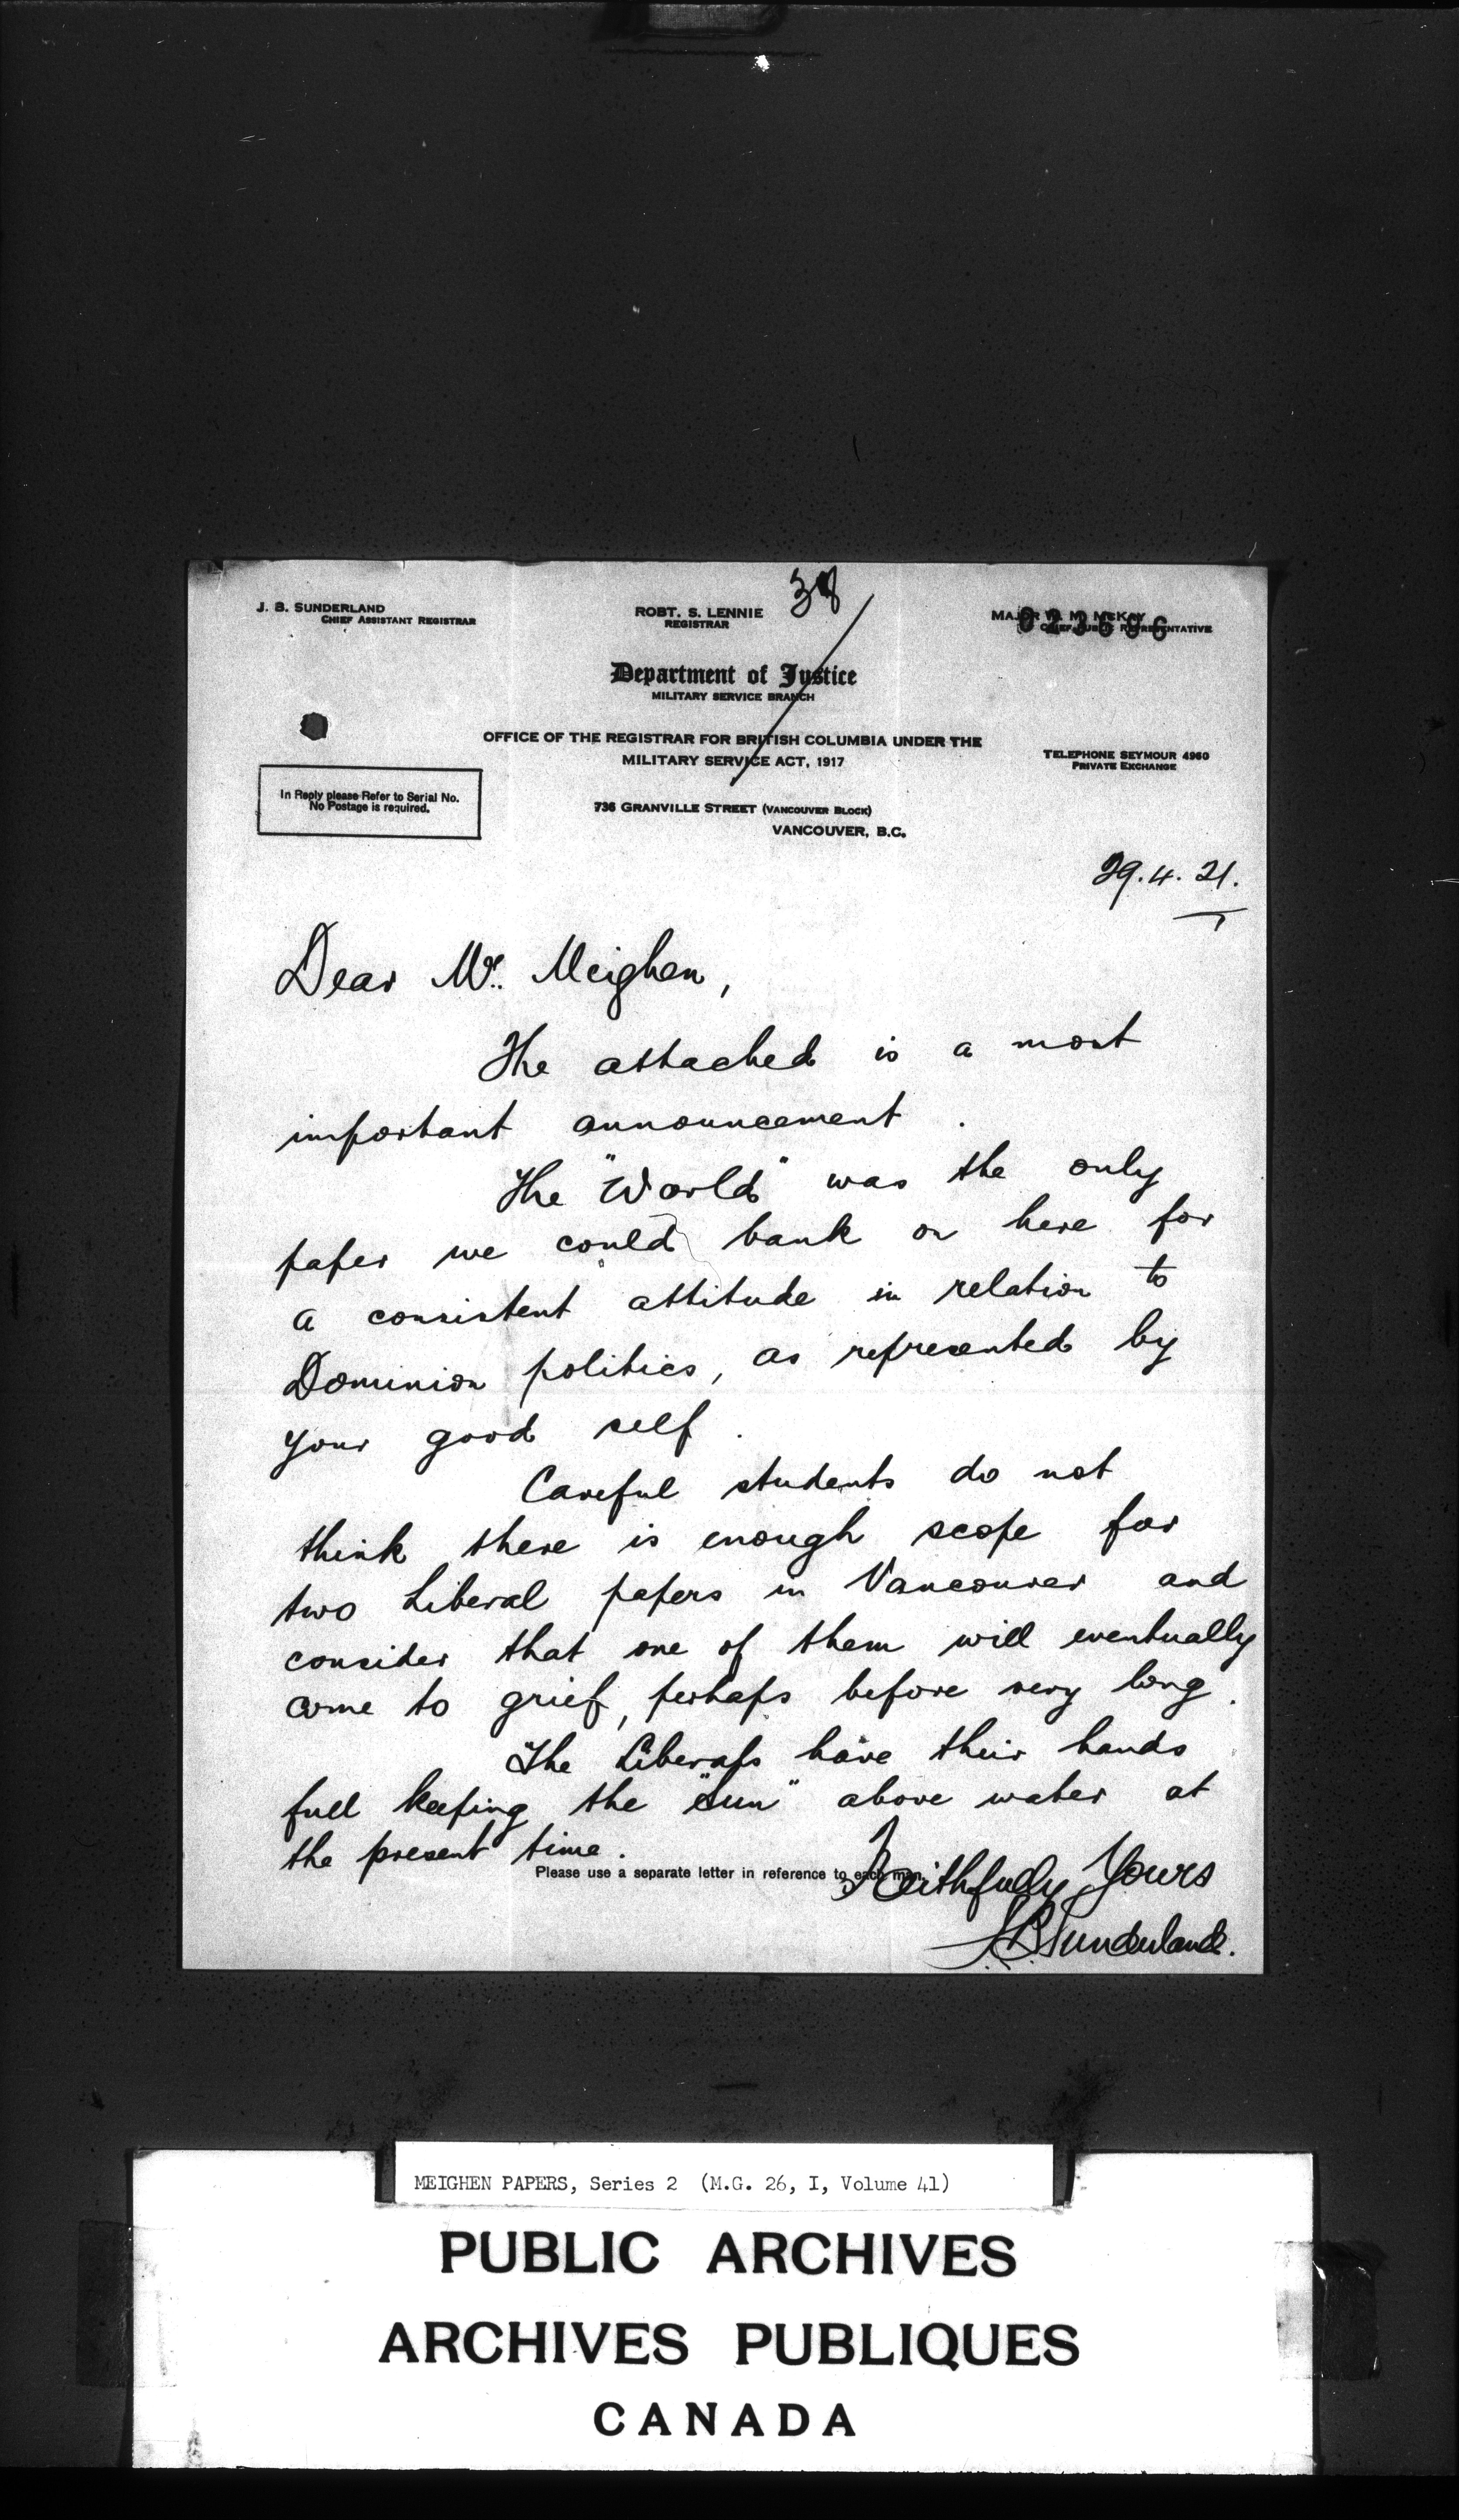 38
J. B. SUNDERLAND
CHIEF ASSISTANT REGISTRAR
ROBT. S. LENNIE
REGISTRAR
MAJOR W. M. McKAY
CHIEF PUBLIC REPRESENTATIVE
Department of Justice
MILITARY SERVICE BRANCH
OFFICE OF THE REGISTRAR FOR BRITISH COLUMBIA UNDER THE
MILITARY SERVICE ACT, 1917
TELEPHONE SEYMOUR 4960
PRIVATE EXCHANGE
In Reply please Refer to Serial No.
No Postage is required.
736 GRANVILLE STREET (VANCOUVER BLOCK)
VANCOUVER, B.C.
29.4.21.
Dear Mr. Meighen,
The attached is a most
important announcement.
The "World" was the only
paper we could bank on here for
a consistent attitude in relation to
Dominion politics, as represented by
your good self.
Careful students do not
think there is enough scope for
two Liberal papers in Vancouver and
consider that one of them will eventually
come to grief, perhaps before very long.
The Liberals have their hands
full keeping the "Sun" above water at
the present time.
Please use a separate letter in reference to each man.
Faithfully Yours
J.B. Sunderland.
MEIGHEN PAPERS, Series 2 (M.G. 26, I, Volume 41)
PUBLIC ARCHIVES
ARCHIVES PUBLIQUES
CANADA